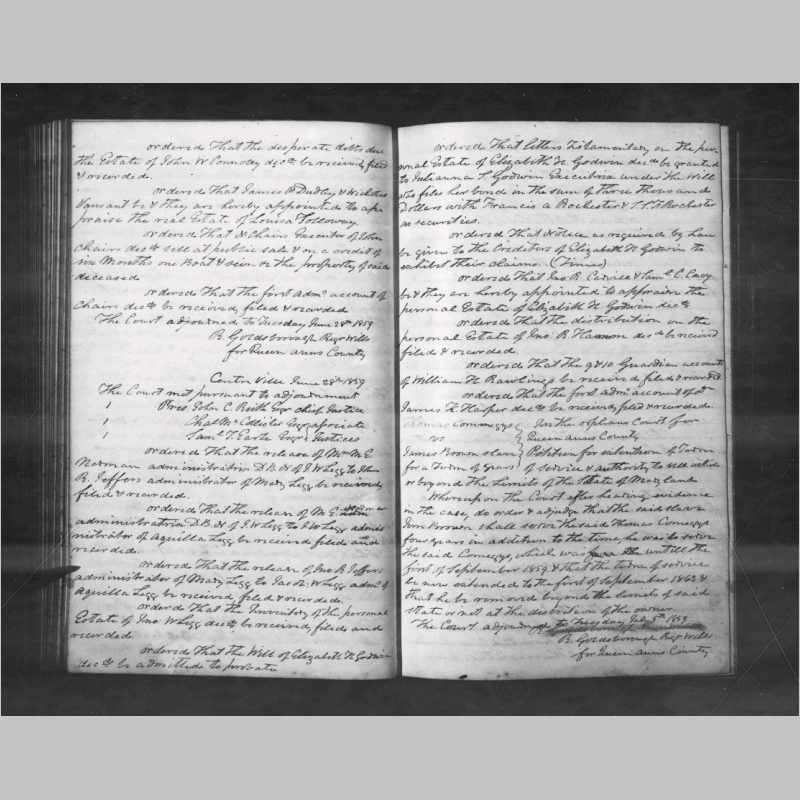 ordered That the desperate debts due
the Estate of John W Connolly decd be received, filed
& recorded.
ordered That James P Dudley & Nicholas
Vansant be & they are hereby appointed to ap
praise the real Estate of Louisa Tolloway.
ordered That N Chairs Executor of John
Chairs decd sell at public sale & on a credit of
six Months one Boat & sein the property of said
deceased
ordered that the first admn account of
Chairs decd be received, filed & recorded
The Court adjourned to Tuesday June 28th 1859
R. Goldsborough Regr Wills
for Queen anns County
Centre Ville June 28th 1859
The Court met pursuant to adjournment
1 Prest John C. Ruth Esqr chief Justice
1 Chas McCollister Esqr associate
1 Saml T. Earle Esqr Justices
ordered that the release of Wm M. E.
Norman administrator D.B.N of J W Legg to John
B. Jeffers administrator of Mary Legg be received,
filed & recorded.
ordered that the release of M. E.
administrator D.B.N of J W Legg to J W Legg admi
nistrator of Aquilla Legg be received filed and
recorded.
ordered That the release of Jno B Jeffers
administrator of Mary Legg to Jacob W Legg admr of
Aquilla Legg be received, filed & recorded,
ordered That the Inventory of the personal
Estate of Jno W Legg decd be received, filed and
recorded.
ordered That the Will of Elizabeth N Godwin
decd be admitted to probate
ordered That letters Testamentary on the per
sonal Estate of Elizabeth N Godwin decd be granted
to Julianna T. Godwin Executrix under the Will
she files her bond in the sum of three thousand
Dollars with Francis a Rochester & Rochester
as securities.
ordered That Notice as required by Law
be given to the Creditors of Elizabeth N Godwin to
exhibit their claims. (Times)
ordered That Jno B. & Saml C. Casey
be & they are hereby appointed to appraise the
personal Estate of Elizabeth N Godwin decd
ordered That the distribution on the
personal Estate of Jno B. Hamon decd be received
filed & recorded.
ordered That the 9 & 10 Guardian accounts
of William H Rawlings be received, filed & recorded
ordered That the first admn account of
James H Harper decd be received, filed & recorded
Thomas Comeggs In the orphans Court for
vs Queen anns County
James Brown slave Petition for extention of Term
for a Term of years of service & authority to sell within
or beyond the limits of the State of Maryland
Whereupon the Court after hearing evidence
in the case, do order & adjudge that the said slave
Brown shall serve the said Thomas Comeggs
four years in addition to the time he was to serve
the said Comeggs, which was untill the
first of September 1859 & that the term of service
be now extended to the first of September 1863 &
that he be removed beyond the limits of said
state or not at the discretion of the owner.
The Court adjourned to Tuesday July 5th 1859
R. Goldsborough Regr Wills
for Queen anns County